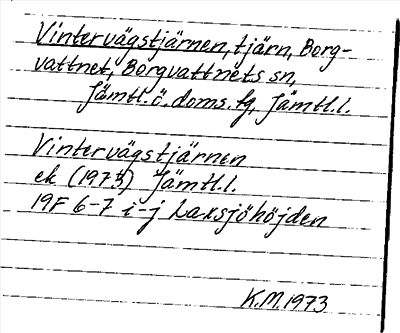 Vintervägstjärnen, tjärn, Borg-
vattnet, Borgvattnets sn,
Jämtl. ö. doms. fg, Jämtl.l.
Vintervägstjärnen
ek (1973) Jämtl.l.
19F 6-7 i-j Laxsjöhöjden
K.M. 1973